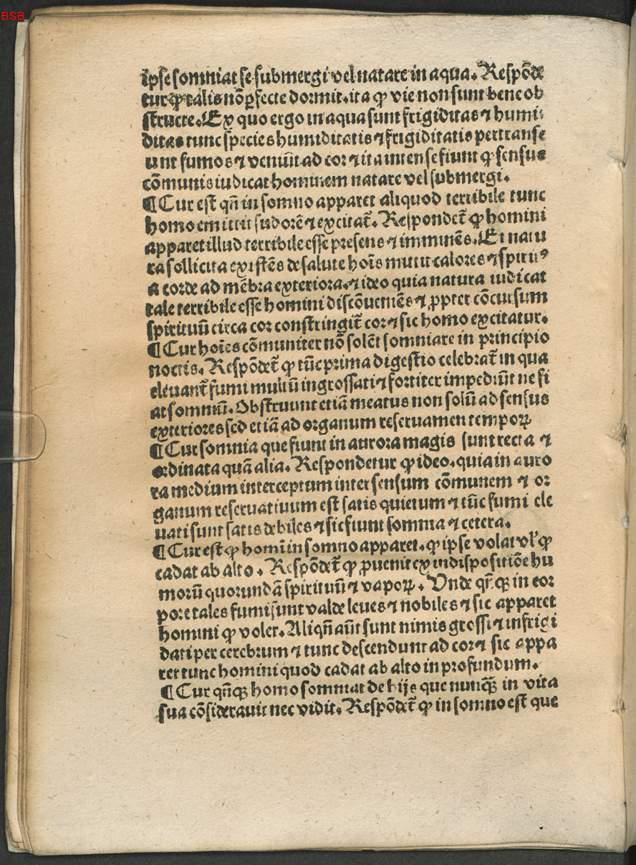 BSB
ipse somniat se submergi vel natare in aqua. Respōde
tur ꝙ talis nō ꝑfecte dormit. ita ꝙ vie non sunt bene ob
structe. Ex quo ergo in aqua sunt frigiditas ⁊ humi⸗
ditas tunc species humiditatis ⁊ frigiditatis pertranse
unt fumos ⁊ veniūt ad cor ⁊ ita intense fiunt ꝙ sensus
cōmunis iudicat hominem natare vel submergi.
¶ Cur est qñ in somno apparet aliquod terribile tunc
homo emittit sudorē ⁊ excitat̄. Respondet̄ ꝙ homini
apparet illud terribile esse presens ⁊ imminēs. Et natu
ra sollicita existēs de salute hoīs mittit calores ⁊ spūsꝰ
a corde ad mēbra exteriora. ⁊ ideo quia natura iudicat
tale terribile esse homini discōueniēs ⁊ ꝓpter cōcursum
spirituū circa cor constringit̄ cor ⁊ sic homo excitatur.
¶ Cur hoīes cōmuniter nō solēt somniare in principio
noctis. Respōdet̄ ꝙ tūc prima digestio celebrat̄ in qua
eleuant̄ fumi multū ingrossati ⁊ fortiter impediūt ne fi
at somniū. Obstruunt etiā meatus non solū ad sensus
exteriores sed etiā ad organum reseruamen temporꝝ
¶ Cur somnia que fiunt in aurora magis sunt recta ⁊
ordinata quā alia. Respondetur ꝙ ideo. quia in auro
ra medium interceptum inter sensum cōmunem ⁊ or
ganum reseruatiuum est satis quietum ⁊ tūc fumi ele
uati sunt satis debiles ⁊ sic fiunt somnia ⁊ cetera.
¶ Cur est ꝙ homī in somno apparet. ꝙ ipse volat vl̓ ꝙ
cadat ab alto. Respōdet̄ ꝙ ꝓuenit ex indispositiōe hu
morū quorundā spirituū ⁊ vaporꝝ. Unde qr̄ qꝫ in cor
pore tales fumi sunt valde leues ⁊ nobiles ⁊ sic apparet
homini ꝙ volet. Aliqñ aūt sunt nimis grossi ⁊ infrigi
dati per cerebrum ⁊ tunc descendunt ad cor ⁊ sic appa
ret tunc homini quod cadat ab alto in profundum.
¶ Cur qñqꝫ homo somniat de hijs que nunqꝫ in vita
sua cōsiderauit nec vidit. Respōdet̄ ꝙ in somno est que